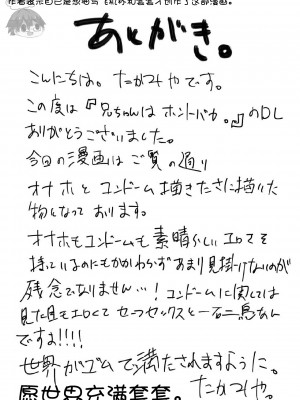 作者表示自己是想画飞机杯和套套才创作了这部漫画。
あとがき。
こんにちは。たかつやです。
この度は『兄ちゃんはホントバカ。』のDL
ありがとうございました。
今回の漫画はご覧の通り
オナホとコンドーム描きたさに描いた
物となっております。
オナホもコンドームも素晴らしいエロさを
持っているのにもかかわらずあまり見掛けないのが
残念でなりません…!コンドームに関しては
見た目もエロくてセーフセックスと一石二鳥なん
ですよ!!!!
世界がゴムで満たされますように。
愿世界充满套套。たかつや。